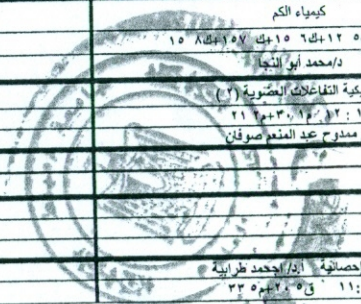 كيمياء الكم
٥ ١٢+ك٦ ١٥+ك٧ ١٥+ك٨ ١٥
د/محمد أبو النجا
كية التفاعلات العضوية (٢)
١٢ : م١ ٣٠+م٢ ٢١
ممدوح عبد المنعم صوفان
حصائية أ.د/ احمد طرابية
١١ : ق٥ ٢٠+م٥ ٣٣